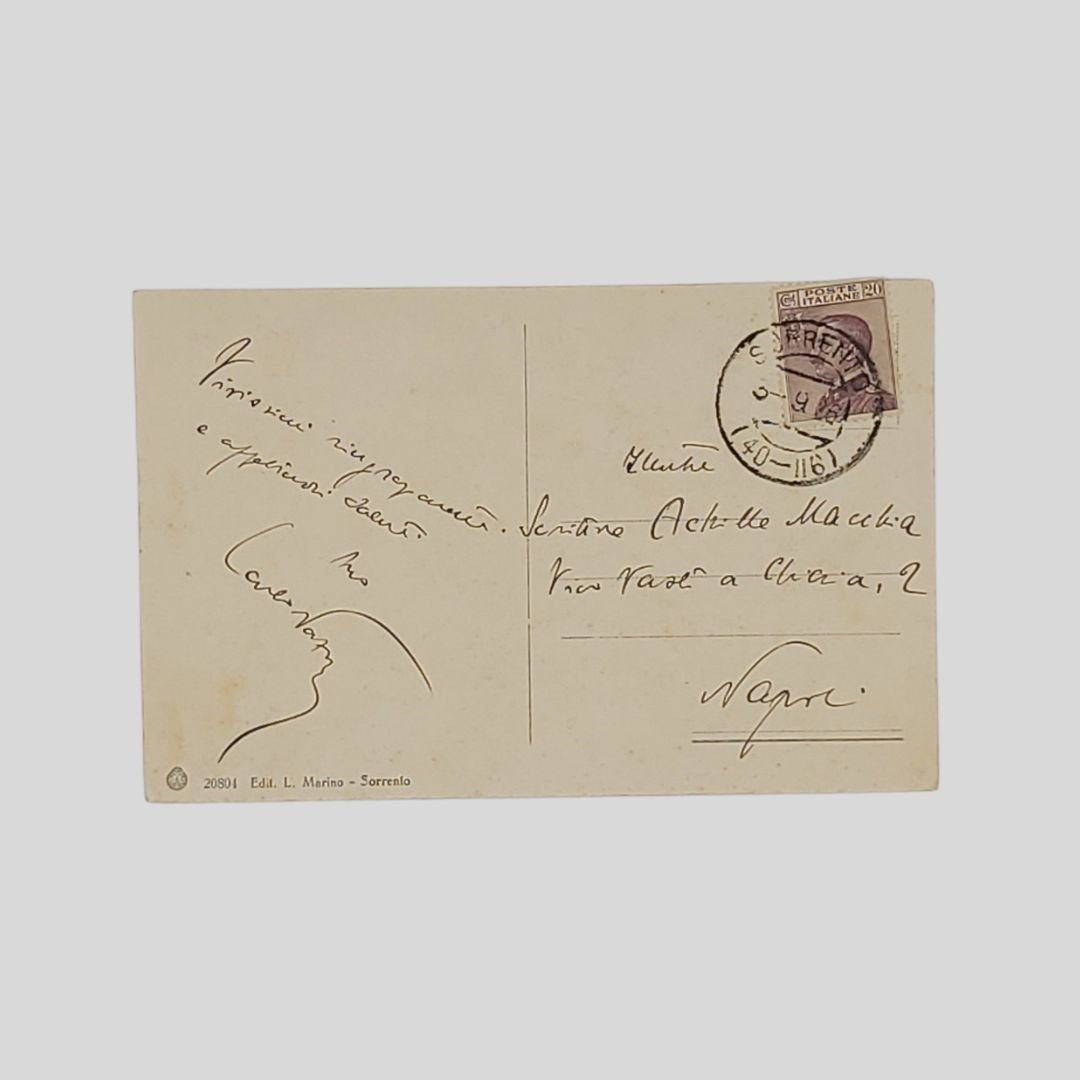 Vivissimi ringraziamenti
e affettuosi saluti.
Suo
Carlo
C. POSTE ITALIANE 20
SORRENTO
9
(40-116)
Illustre
Scrittore Achille Macchia
Vico Vasti a Chiaia, 2
Napoli
20801 Edit. L. Marino - Sorrento